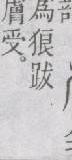 為狼跋
膚受。